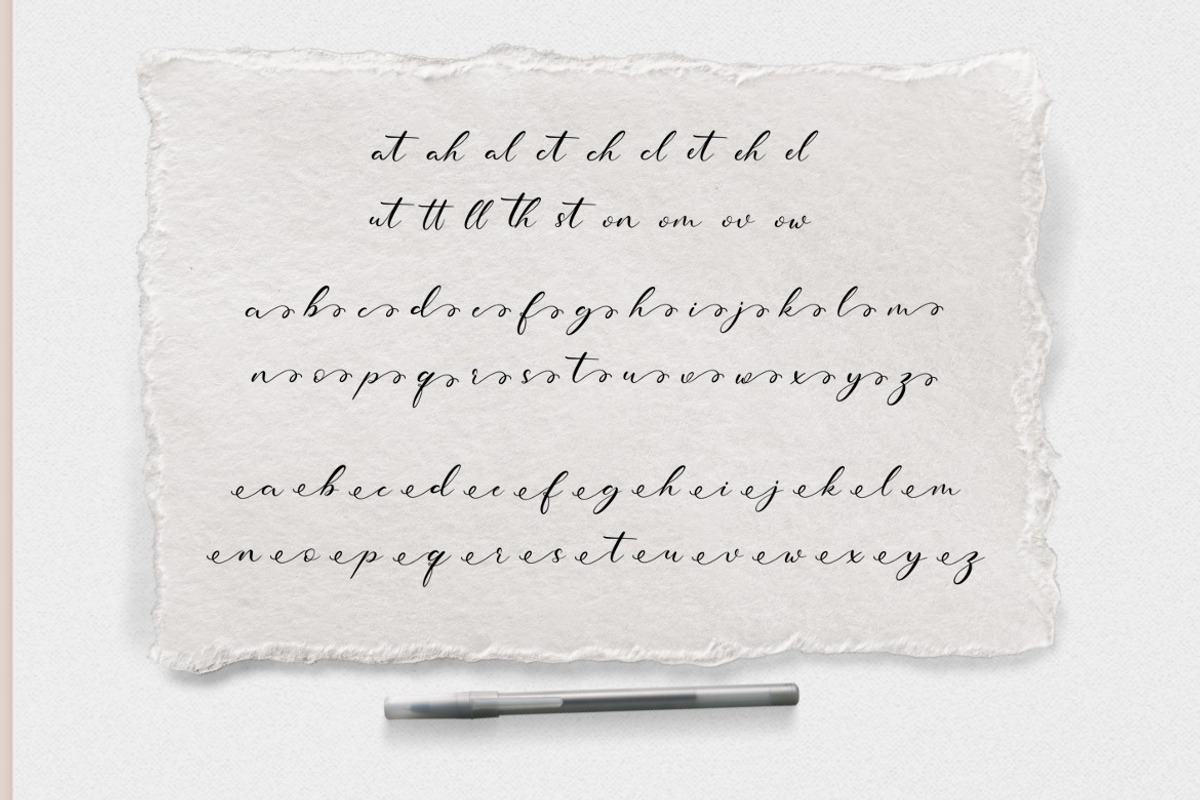 at ah al ct ch cl et eh el
ut tt ll th st on om ov ow
a b c d e f g h i j k l m
n o p q r s t u v w x y z
ea eb ec ed ee ef eg eh ei ej ek el em
en eo ep eq er es et eu ev ew ex ey ez